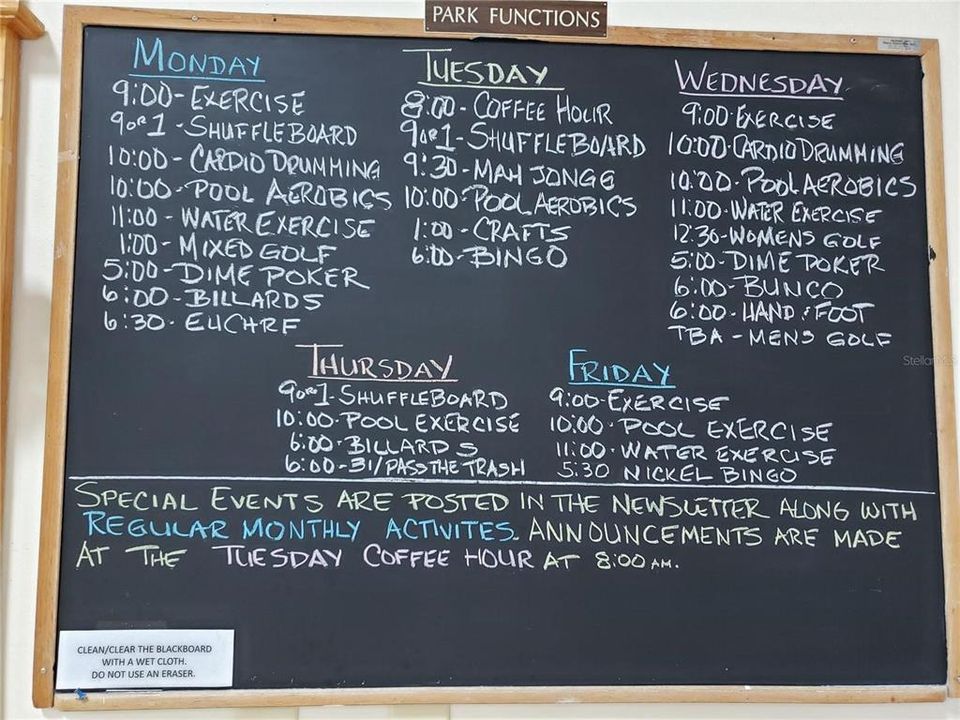 PARK FUNCTIONS
MONDAY
9:00-EXERCISE
9OR1-SHUFFLEBOARD
10:00-CARDIO DRUMMING
10:00-POOL AEROBICS
11:00-WATER EXERCISE
1:00-MIXED GOLF
5:00-DIME POKER
6:00-BILLARDS
6:30-EUCHRE
TUESDAY
8:00-COFFEE HOUR
9OR1-SHUFFLEBOARD
9:30-MAH JONGE
10:00-POOL AEROBICS
1:00-CRAFTS
6:00-BINGO
WEDNESDAY
9:00-EXERCISE
10:00-CARDIO DRUMMING
10:00-POOL AEROBICS
11:00-WATER EXERCISE
12:30-WOMENS GOLF
5:00-DIME POKER
6:00-BUNCO
6:00-HAND & FOOT
TBA-MENS GOLF
THURSDAY
9OR1-SHUFFLEBOARD
10:00-POOL EXERCISE
6:00-BILLARDS
6:00-31/PASS THE TRASH
FRIDAY
9:00-EXERCISE
10:00-POOL EXERCISE
11:00-WATER EXERCISE
5:30 NICKEL BINGO
SPECIAL EVENTS ARE POSTED IN THE NEWSLETTER ALONG WITH
REGULAR MONTHLY ACTIVITES. ANNOUNCEMENTS ARE MADE
AT THE TUESDAY COFFEE HOUR AT 8:00 AM.
CLEAN/CLEAR THE BLACKBOARD
WITH A WET CLOTH.
DO NOT USE AN ERASER.